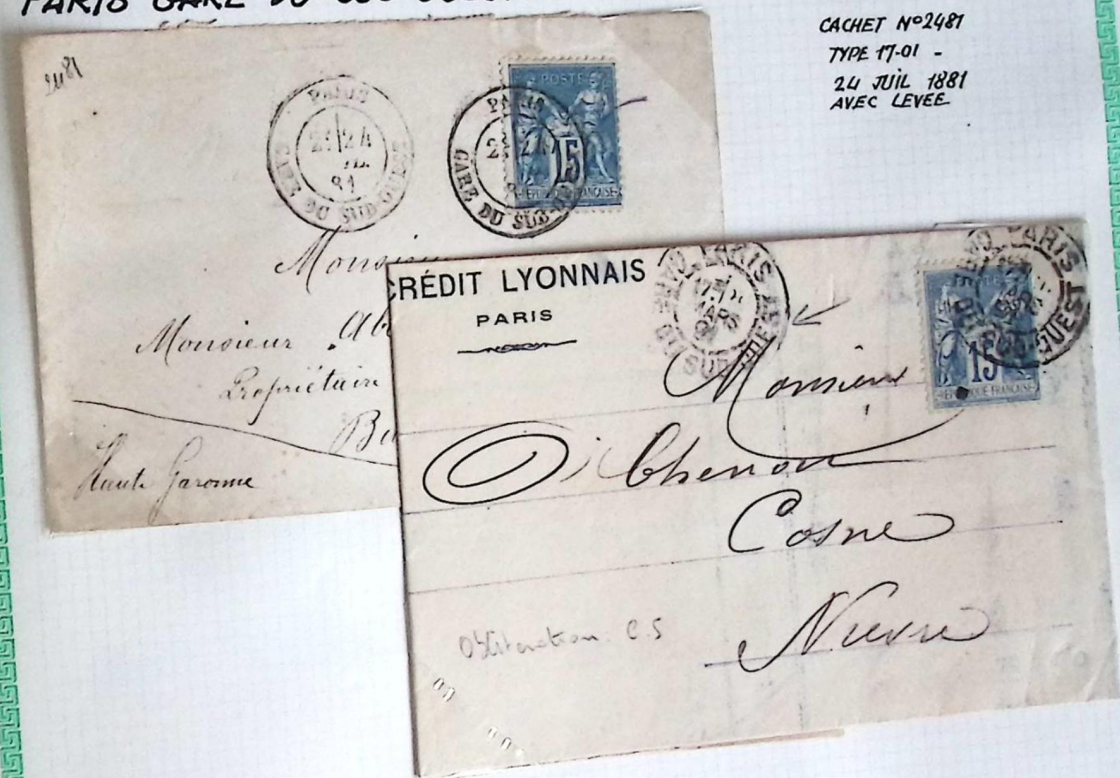 PARIS GARE DU SUD OUEST
CACHET Nº2481
TYPE 17-01 -
24 JUIL 1881
AVEC LEVEE
2481
PARIS
24
81
GARE DU SUD-OUEST
PARIS
GARE DU SUD-OUEST
POSTE
15
REPUBLIQUE FRANÇAISE
Monsieur
Monsieur Ab
Propriétaire
Haute Garonne
CRÉDIT LYONNAIS
PARIS
PARIS
GARE DU SUD OUEST
MARS
PARIS
GARE DU SUD-OUEST
15
REPUBLIQUE FRANÇAISE
Monsieur
Chenou
Cosne
Nievre
Oblitération C.S